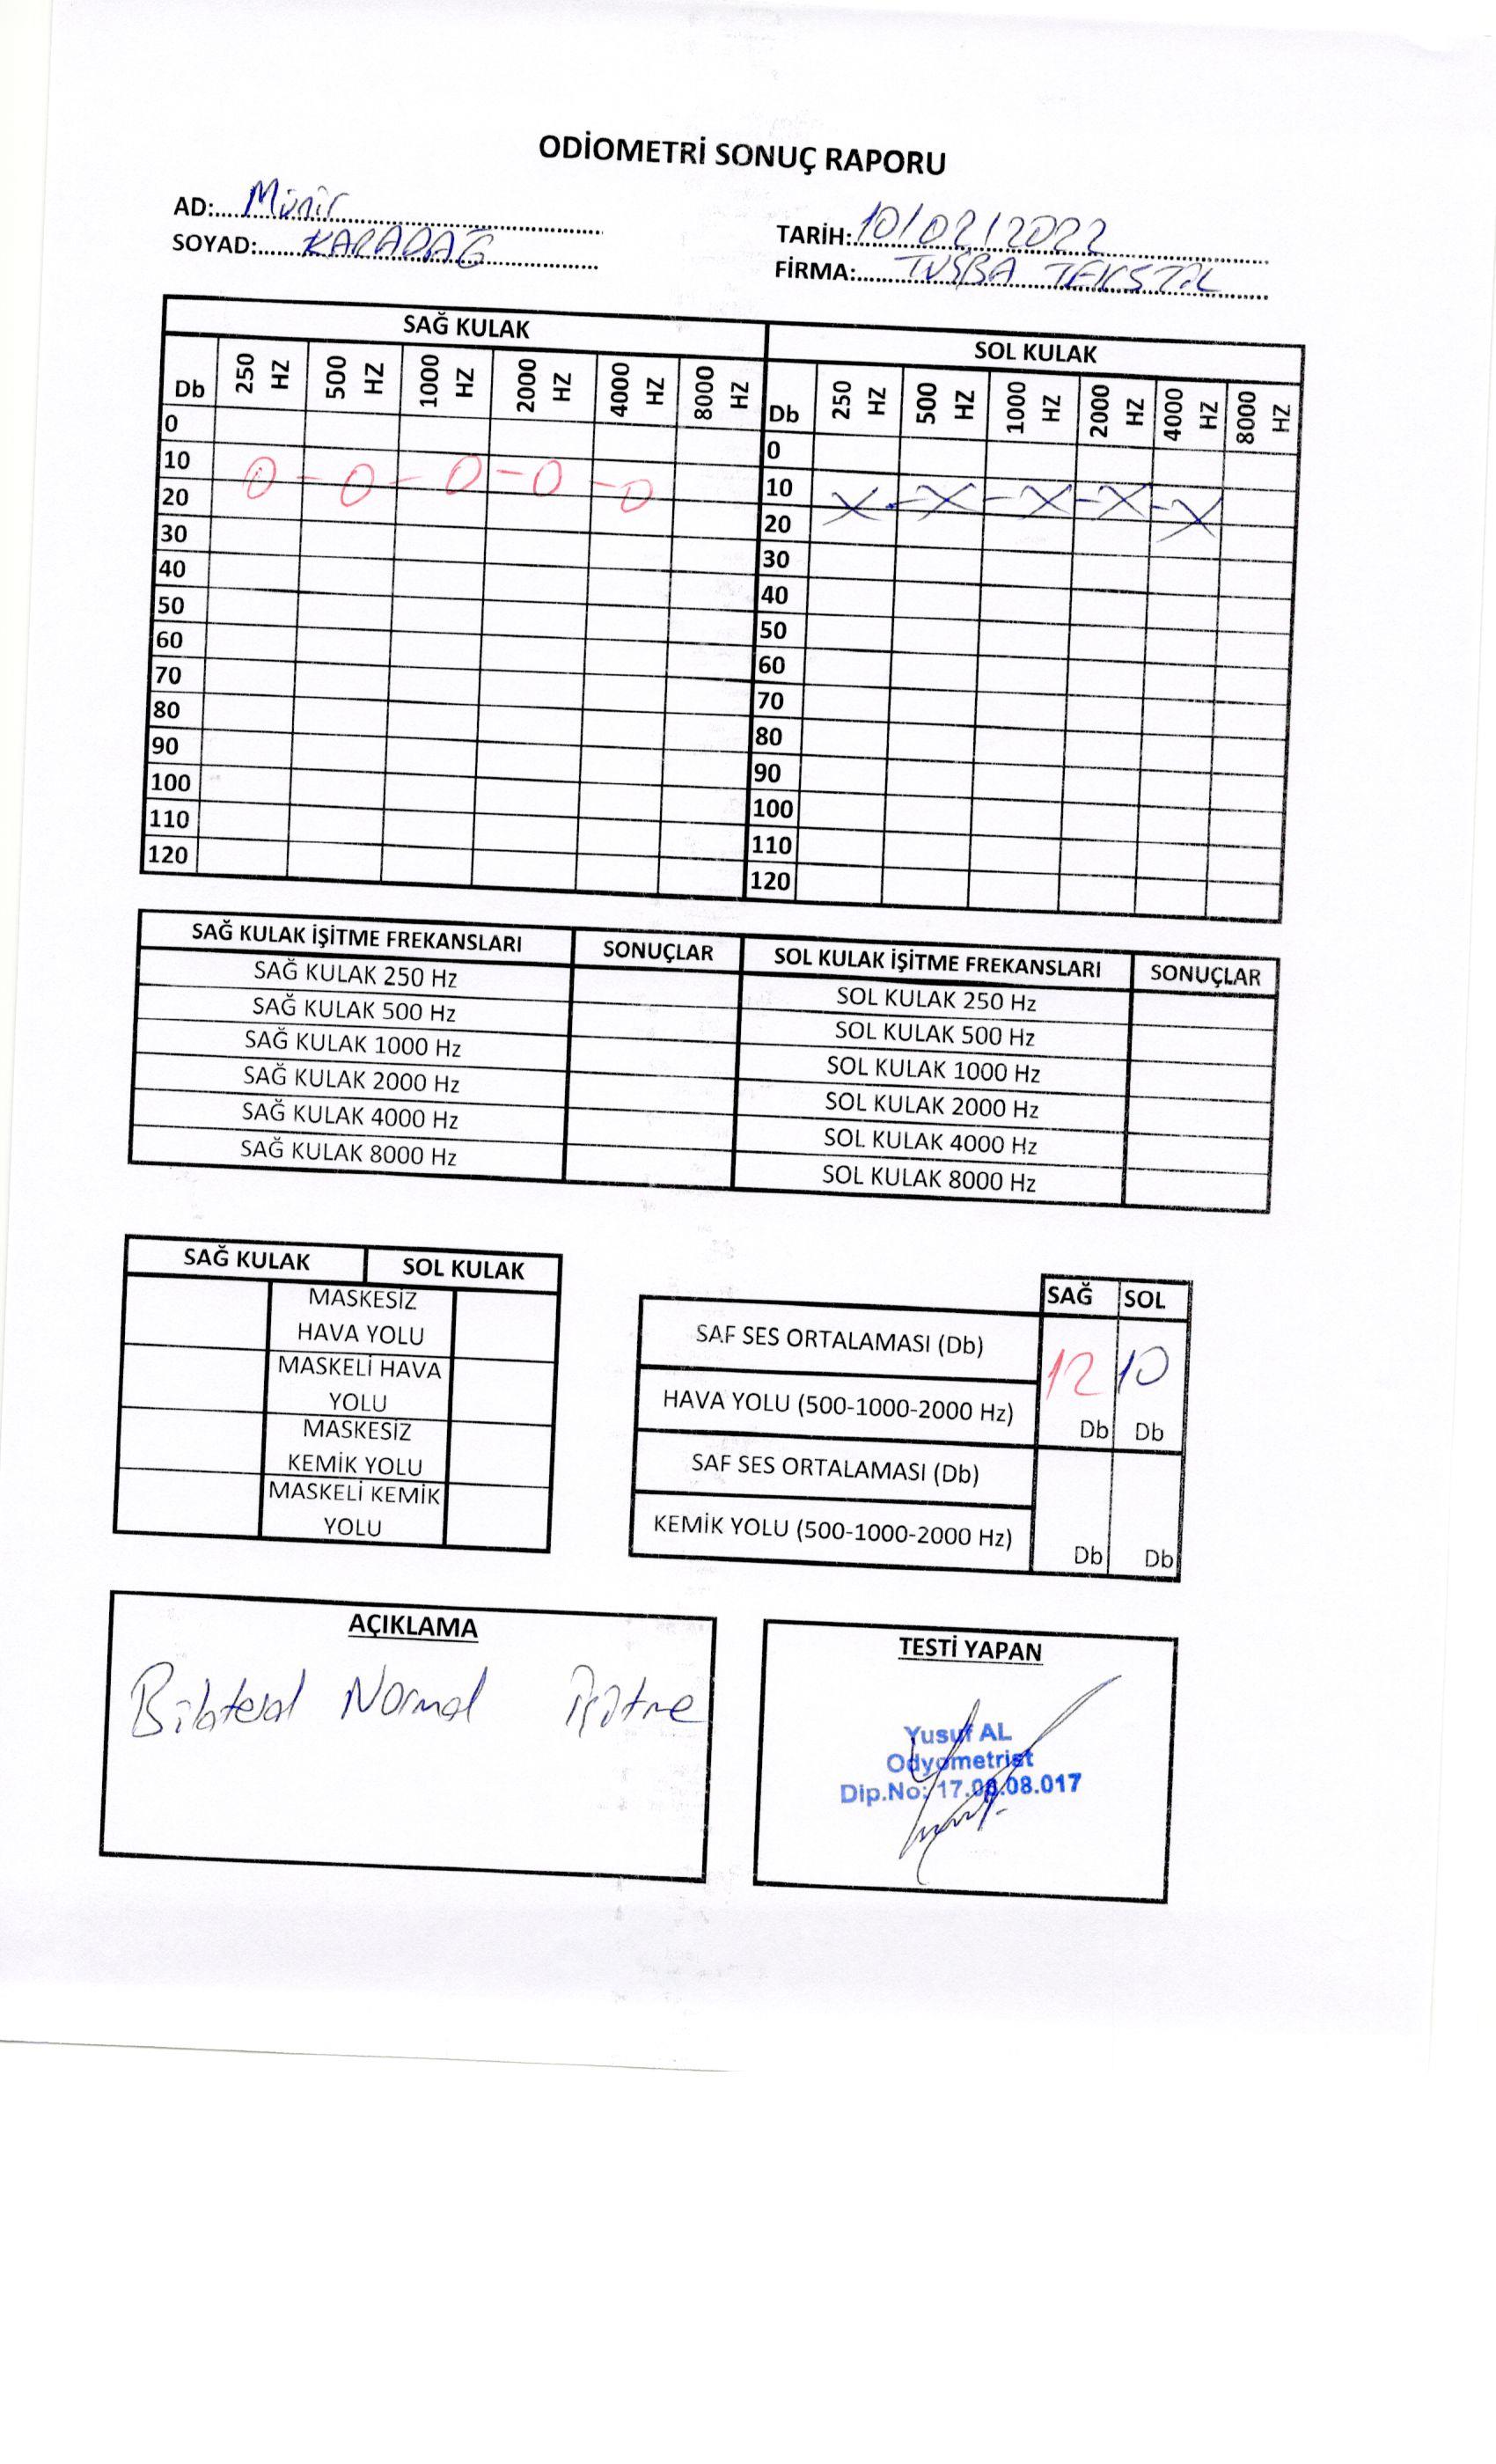 ODİOMETRİ SONUÇ RAPORU
AD: Münir
SOYAD: KARADAĞ
TARİH: 10/02/2022
FİRMA: TUŞBA TEKSTİL
SAĞ KULAK SOL KULAK
Db 250 HZ 500 HZ 1000 HZ 2000 HZ 4000 HZ 8000 HZ Db 250 HZ 500 HZ 1000 HZ 2000 HZ 4000 HZ 8000 HZ
0 0
10 O - O - O - O - O 10 X - X - X - X - X
20 20
30 30
40 40
50 50
60 60
70 70
80 80
90 90
100 100
110 110
120 120
SAĞ KULAK İŞİTME FREKANSLARI SONUÇLAR SOL KULAK İŞİTME FREKANSLARI SONUÇLAR
SAĞ KULAK 250 Hz SOL KULAK 250 Hz
SAĞ KULAK 500 Hz SOL KULAK 500 Hz
SAĞ KULAK 1000 Hz SOL KULAK 1000 Hz
SAĞ KULAK 2000 Hz SOL KULAK 2000 Hz
SAĞ KULAK 4000 Hz SOL KULAK 4000 Hz
SAĞ KULAK 8000 Hz SOL KULAK 8000 Hz
SAĞ KULAK SOL KULAK
MASKESİZ
HAVA YOLU
MASKELİ HAVA
YOLU
MASKESİZ
KEMİK YOLU
MASKELİ KEMİK
YOLU
SAĞ SOL
SAF SES ORTALAMASI (Db)
12 10
HAVA YOLU (500-1000-2000 Hz)
Db Db
SAF SES ORTALAMASI (Db)
KEMİK YOLU (500-1000-2000 Hz)
Db Db
AÇIKLAMA
Bilateral Normal İşitme
TESTİ YAPAN
Yusuf AL
Odyometrist
Dip.No: 17.08.08.017